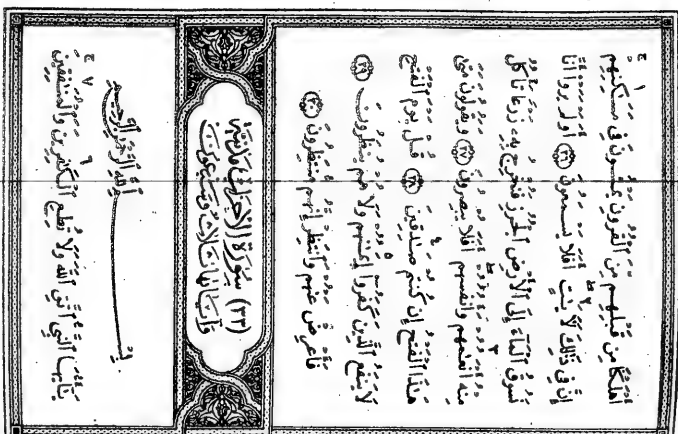 أَهْلَكْنَا مِن قَبْلِهِم مِّنَ ٱلْقُرُونِ يَمْشُونَ فِى مَسَٰكِنِهِمْ
إِنَّ فِى ذَٰلِكَ لَآيَٰتٍ أَفَلَا يَسْمَعُونَ ٢٦ أَوَلَمْ يَرَوْا أَنَّا
نَسُوقُ ٱلْمَآءَ إِلَى ٱلْأَرْضِ ٱلْجُرُزِ فَنُخْرِجُ بِهِ زَرْعًا تَأْكُلُ
مِنْهُ أَنْعَٰمُهُمْ وَأَنفُسُهُمْ أَفَلَا يُبْصِرُونَ ٢٧ وَيَقُولُونَ مَتَىٰ
هَٰذَا ٱلْفَتْحُ إِن كُنتُمْ صَٰدِقِينَ ٢٨ قُلْ يَوْمَ ٱلْفَتْحِ
لَا يَنفَعُ ٱلَّذِينَ كَفَرُوا إِيمَٰنُهُمْ وَلَا هُمْ يُنظَرُونَ ٢٩
فَأَعْرِضْ عَنْهُمْ وَٱنتَظِرْ إِنَّهُم مُّنتَظِرُونَ ٣٠
(٣٣) سورة الاحزاب مدنية
وآياتها ثلاث وسبعون
بِسْمِ ٱللَّهِ ٱلرَّحْمَٰنِ ٱلرَّحِيمِ
يَٰأَيُّهَا ٱلنَّبِىُّ ٱتَّقِ ٱللَّهَ وَلَا تُطِعِ ٱلْكَٰفِرِينَ وَٱلْمُنَٰفِقِينَ